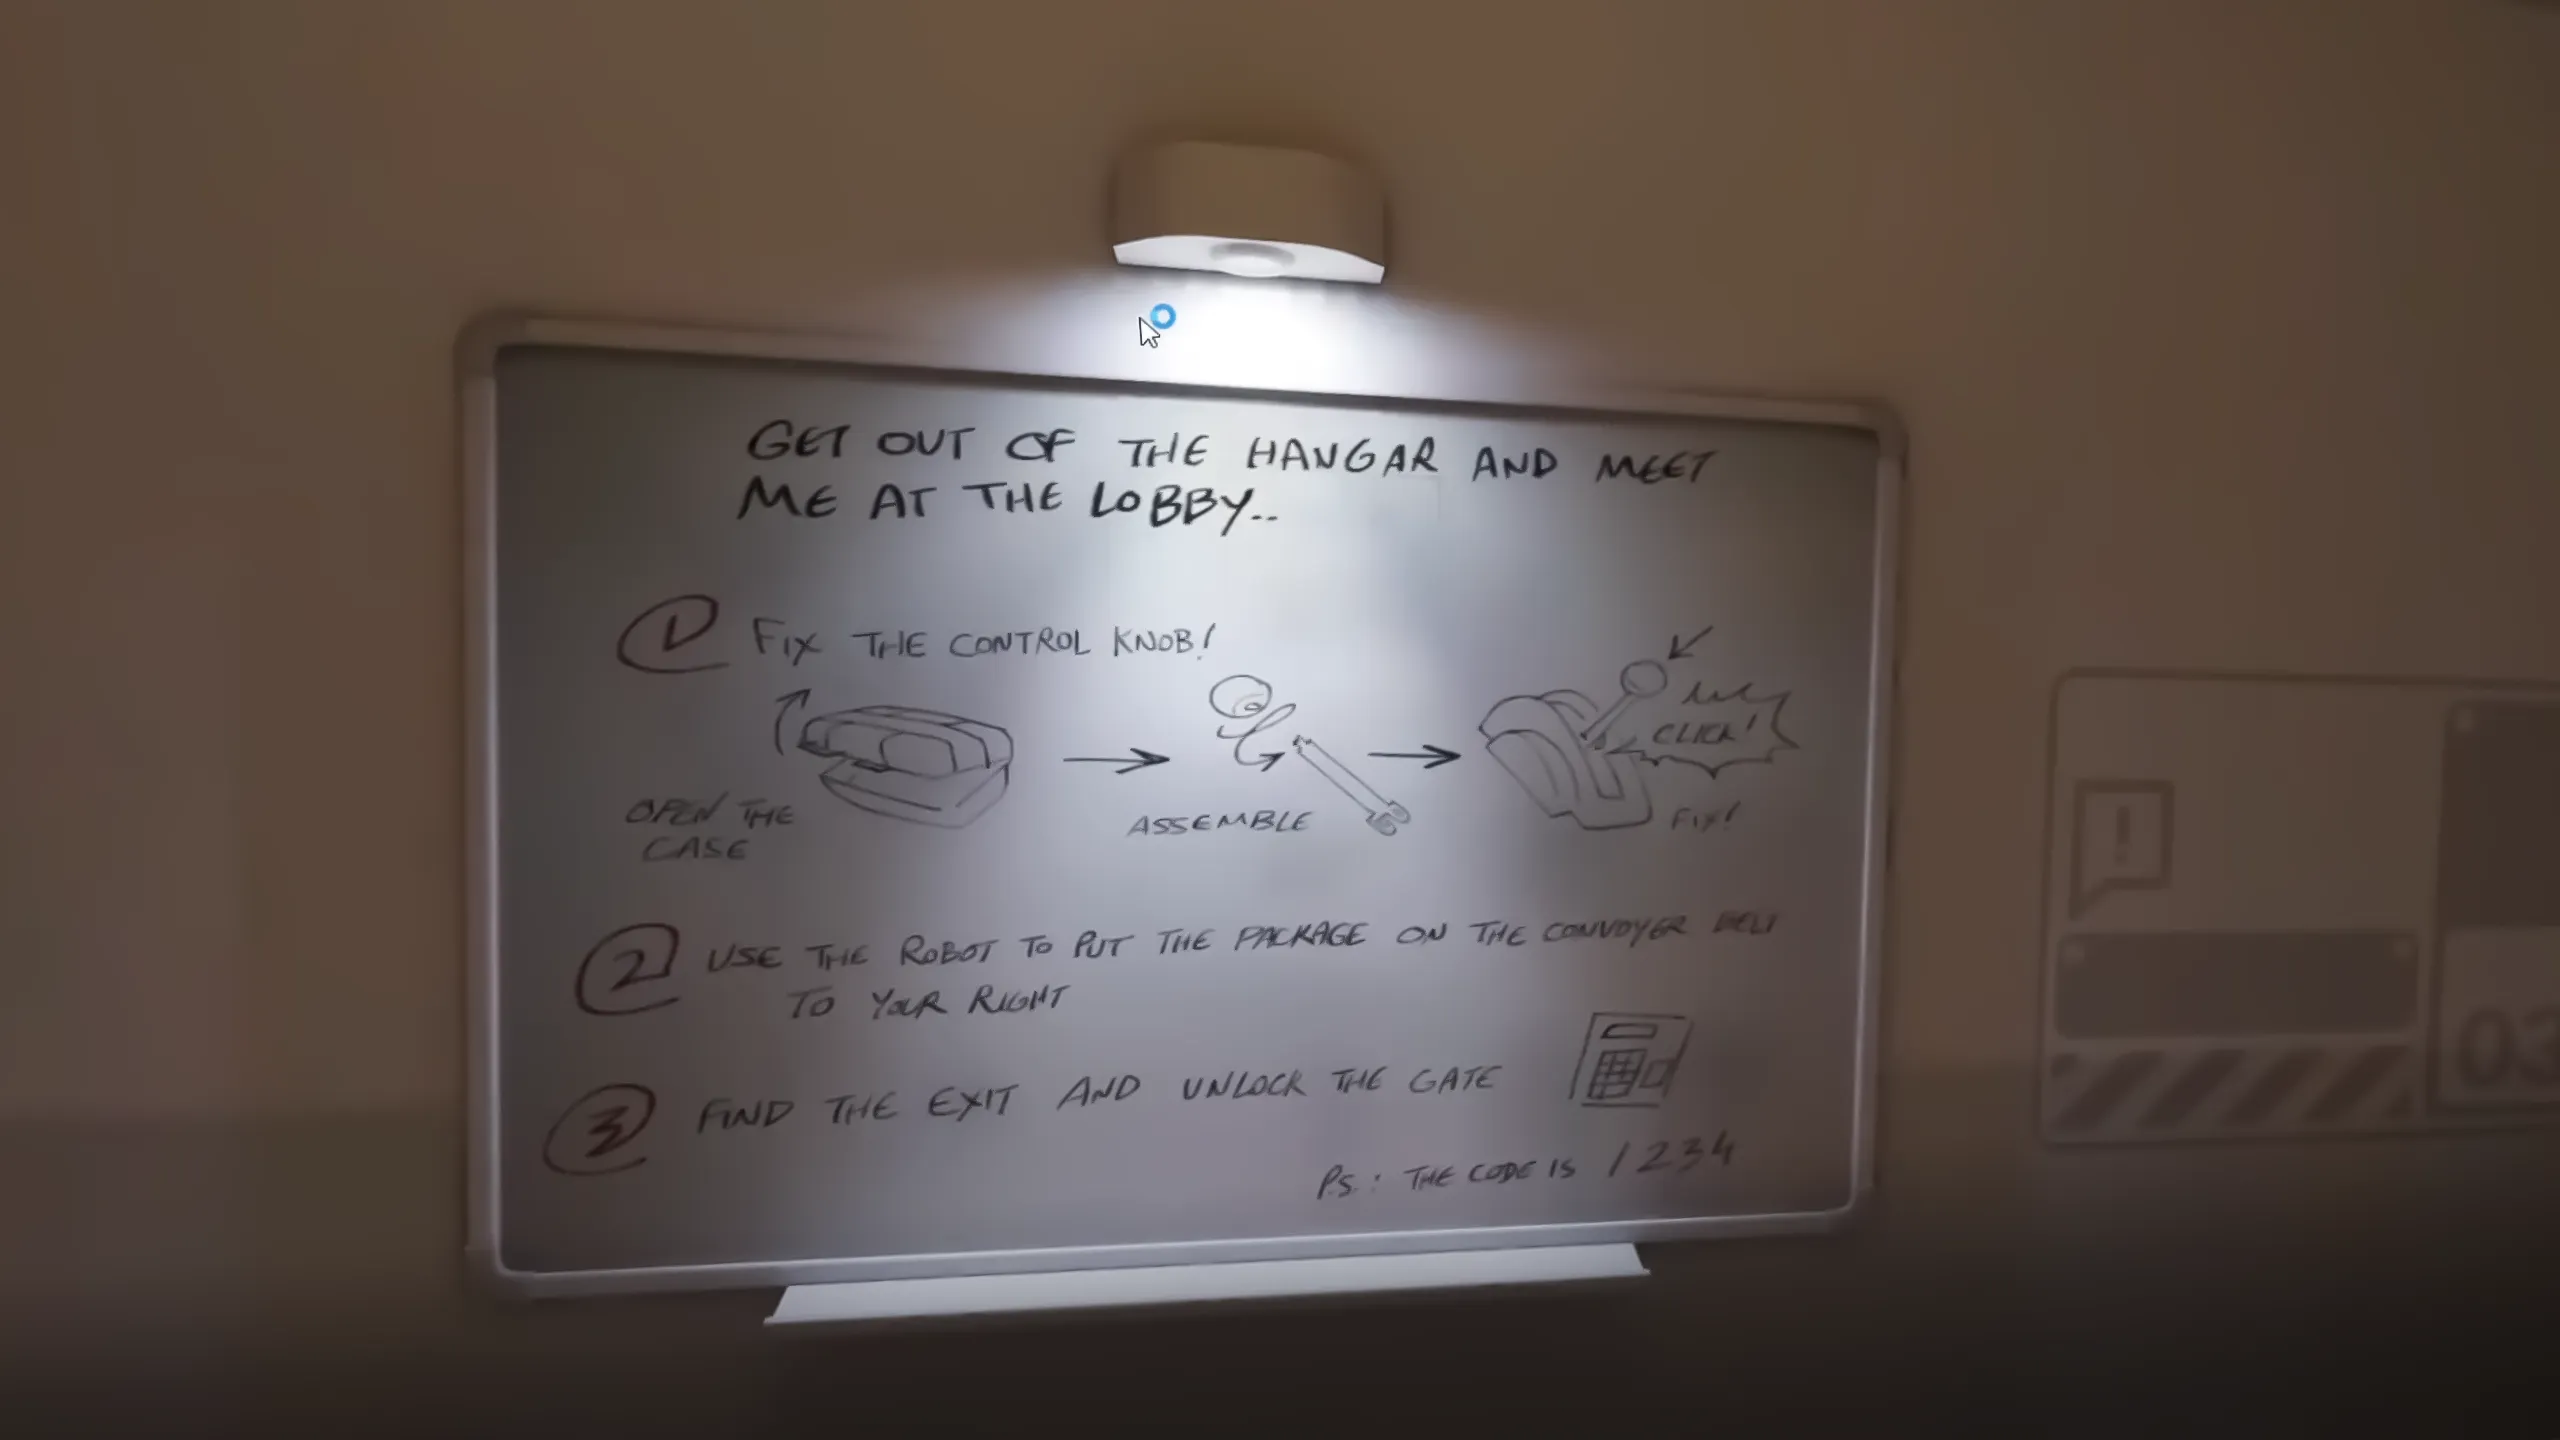 GET OUT OF THE HANGAR AND MEET
ME AT THE LOBBY..
1 FIX THE CONTROL KNOB!
CLICK!
OPEN THE
CASE
ASSEMBLE
FIX!
2 USE THE ROBOT TO PUT THE PACKAGE ON THE CONVOYER BELT
TO YOUR RIGHT
3 FIND THE EXIT AND UNLOCK THE GATE
P.S.: THE CODE IS 1234
!
03